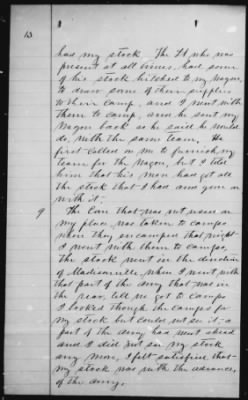 13
had my stock. The Lt who was
present at all times, had some
of his stock hitched to my wagon,
to draw some of their supplies
to their camp, and I went with
them to camp, and he sent my
wagon back as he said he would
do, with the same team. He
first called on me to furnish my
team for the wagon, but I told
him that his men had got all
the stock that I had and gone on
with it.
9 The Corn that was not used on
my place was taken to camps
when they encamped that night
I went with them to camps,
the stock went in the direction
of Madisonville, when I went with
that part of the army that was in
the rear, till we got to camps
I looked through the camps for
my stock but could not see it - a
part of the army had went ahead
and I did not see my stock
any more, I felt satisfied that
my stock was with the advance,
of the army.